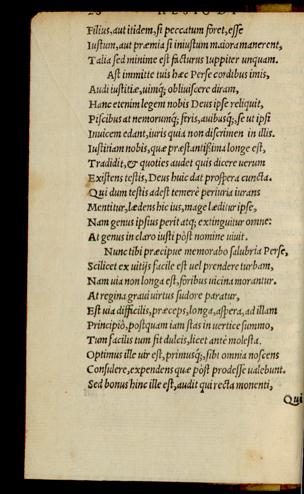 28 HESIODI
Filius, aut itidem, si peccatum foret, esse
Iustum, aut præmia si iniustum maiora manerent,
Talia sed minime est facturus Iuppiter unquam.
Ast immitte tuis hæc Perse cordibus imis,
Audi iustitiæ, uimq; obliuiscere diram,
Hanc etenim legem nobis Deus ipse reliquit,
Piscibus at nemorumq; feris, auibusq;, se ut ipsi
Inuicem edant, iuris quia non discrimen in illis.
Iustitiam nobis, quæ præstantissima longe est,
Tradidit, & quoties audet quis dicere uerum
Existens testis, Deus huic dat prospera cuncta.
Qui dum testis adest temerè periuria iurans
Mentitur, lædens hic ius, mage læditur ipse,
Nam genus ipsius perit atq; extinguitur omne:
At genus in claro iusti pòst nomine uiuit.
Nunc tibi præcipue memorabo salubria Perse,
Scilicet ex uitijs facile est uel prendere turbam,
Nam uia non longa est, foribus uicina morantur.
At regina graui uirtus sudore paratur,
Est uia difficilis, præceps, longa, aspera, ad illam
Principiò, postquam iam stas in uertice summo,
Tum facilis tum fit dulcis, licet antè molesta.
Optimus ille uir est, primusq;, sibi omnia noscens
Consulere, expendens quæ pòst prodesse ualebunt.
Sed bonus hinc ille est, audit qui recta monenti,
Qui